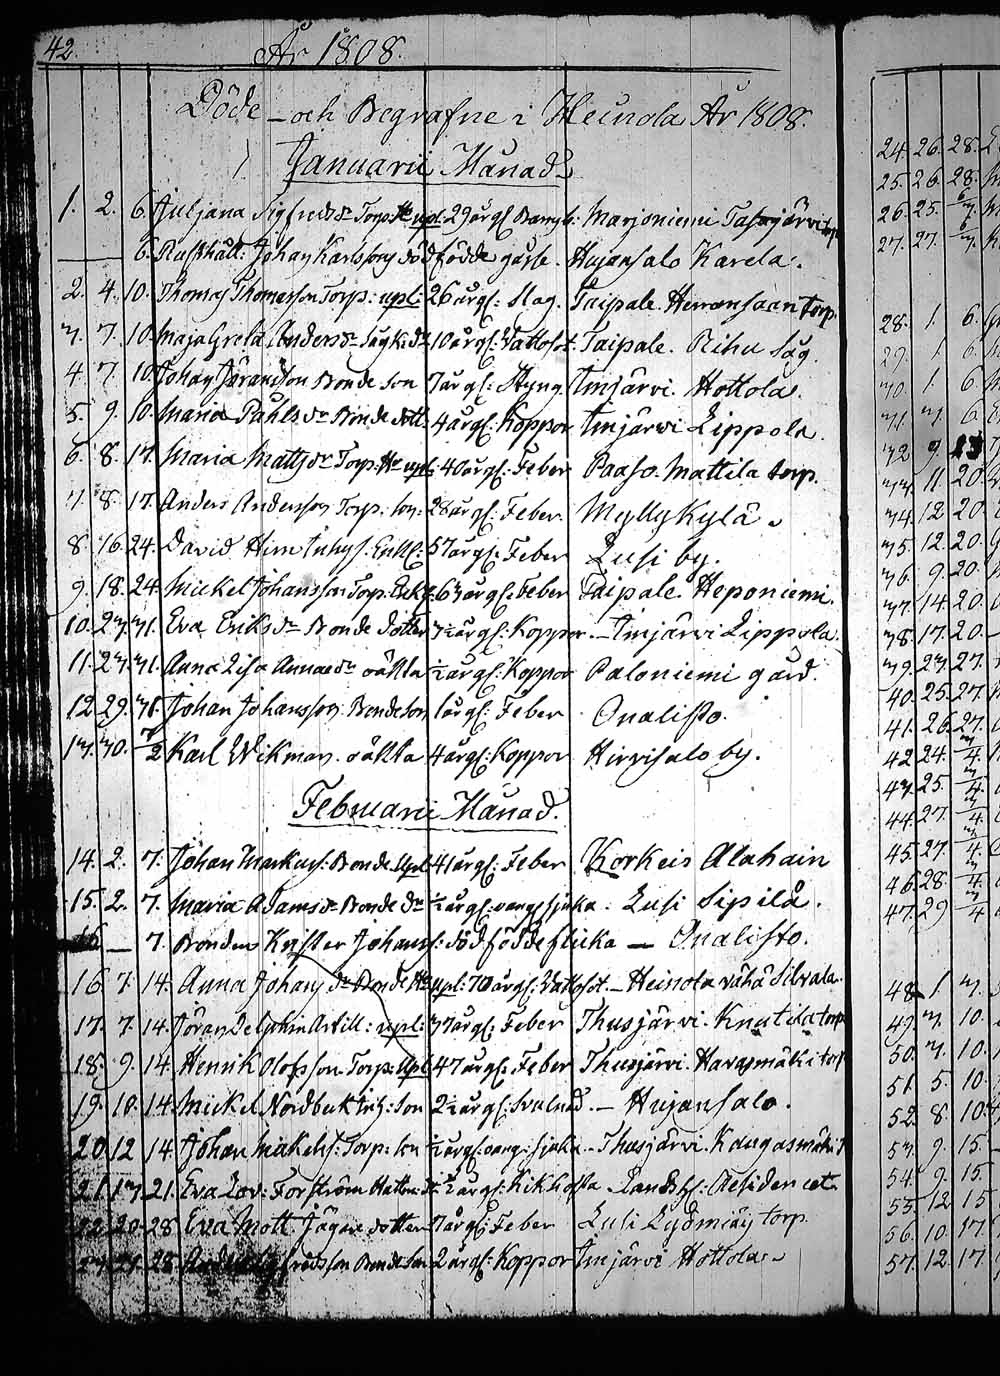 42.
År 1808.
Döde - och Begrafne i Heinola År 1808.
Januarii Månad
1. 2. 6. Juljana Sigfredsdr Torp: Hr upl: 29 årgl: Barnsb: Marjoniemi
6. Johan Karlssons dödfödde gosse. Hujansalo Karela.
2. 4. 10. Thomas Thomasson Torp: upl: 26 årgl: Slag. Taipale. torp.
3. 7. 10. Maja Greta Andersdr 10 årgl: Vattusot. Taipale. Riihu Såg.
4. 7. 10. Johan Göransson Bonde son 7 årgl: Styng Imjärvi Hottola.
5. 9. 10. Maria Påhlsdr Bonde dott: 4 årgl: Koppor Imjärvi Lippola.
6. 8. 17. Maria Mattsdr Torp: Hr upl: 40 årgl: Feber Paaso. Mattila torp.
7. 8. 17. Anders Andersson Torp: son: 28 årgl: Feber. Myllykylä.
8. 16. 24. David 57 årgl: Feber Lusi by.
9. 18. 24. Mickel Johansson Torp: 63 årgl: Feber Taipale. Heponiemi.
10. 23. 31. Eva Eriksdr Bonde dotter 3½ årgl: Koppor. - Imjärvi Lippola.
11. 23. 31. Anna Lisa Annaedr oäkta ½ årgl: Koppor Paloniemi gård.
12. 29. 31. Johan Johansson Bondeson 1 årgl: Feber Onalisto.
13. 30. 7/2 Karl Wikman oäkta 4 årgl: Koppor Hirvisalo by.
Februarii Månad.
14. 2. 7. Johan Markuss: Bonde Upl: 41 årgl: Feber Korkeis Alahain
15. 2. 7. Maria Adamsdr Bonde dr ½ årgl: sjuka. Lusi Sipilä.
— 7. Bonden Krister Johanss: dödföddeflicka — Onalisto.
16. 7. 14. Anna Johansdr Bonde Hr upl: 70 årgl: Vattusot. - Heinola vähä Silvala.
17. 7. 14. Göran Delphin Artill: upl: 37 årgl: Feber Ihusjärvi. Knutila torp
18. 9. 14. Henrik Olofsson Torp: Upl: 47 årgl: Feber Ihusjärvi. Harajmäki torp
19. 10. 14. Mickel Nordbeck son 2½ årgl: Svulnad. - Hujansalo.
20. 12. 14. Johan Mickelss: Torp: son ½ årgl: sjuka. - Ihusjärvi. Kangasmäki t
21. 13. 21. Eva Lov: Forström årgl: Kikhosta Landsh: Residencet.
22. 20. 28. Eva Mott Jägare dotter 7 årgl: Feber Lusi torp.
23. 21. 28. Bonde son 2 årgl: Koppor Imjärvi Hottola.
24. 26. 28.
25. 26. 28.
26. 25. 6/3.
27. 27. 6/3.
28. 1. 6.
29. 1 6.
30. 1. 6.
31. 3. 6
32 9. 13
33. 11. 20.
34. 12 20.
35. 12. 20.
36. 9. 20.
37. 14. 20.
38. 17. 20.
39. 23. 27.
40. 25. 27.
41. 26. 27.
42 24. 3/4.
43. 25. 3/4.
44. 27. 3/4.
45. 27. 3/4.
46. 28. 3/4.
47. 29 3/4
48. 1 3.
49. 3. 10.
50. 3. 10.
51. 5. 10.
52. 8. 10.
53. 9. 15.
54. 9. 15.
55. 12 15
56. 10. 17.
57. 12. 17.